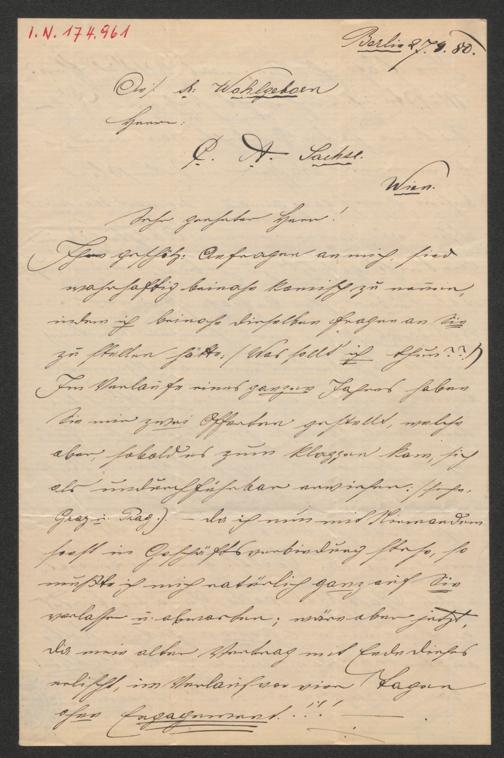 I. N. 174.961
Berlin 27.9.80.
An S. Wohlgeboren
Herrn:
C. A. Sachse.
Wien.
Sehr geehrter Herr!
Ihre geschätz: Anfragen an mich, sind
wahrhaftig beinahe komisch zu nennen,
indem ich beinahe dieselben Fragen an Sie
zu stellen hätte. (Was sollt ich thun??)
Im Verlaufe eines ganzen Jahres haben
Sie mir zwei Offerten gestellt, welche
aber, sobald es zum klappen kam, sich
als undurchführbar erwiesen. (siehe.
Graz u. Prag.). – da ich nun mit Niemandem
sonst in Geschäftsverbindung stehe, so
mußte ich mich natürlich ganz auf Sie
verlassen u. abwarten; wäre aber jetzt,
da mein alter Vertrag mit Ende dieses
erlischt, im Verlauf von vier Tagen
ohne Engagement.!!! —